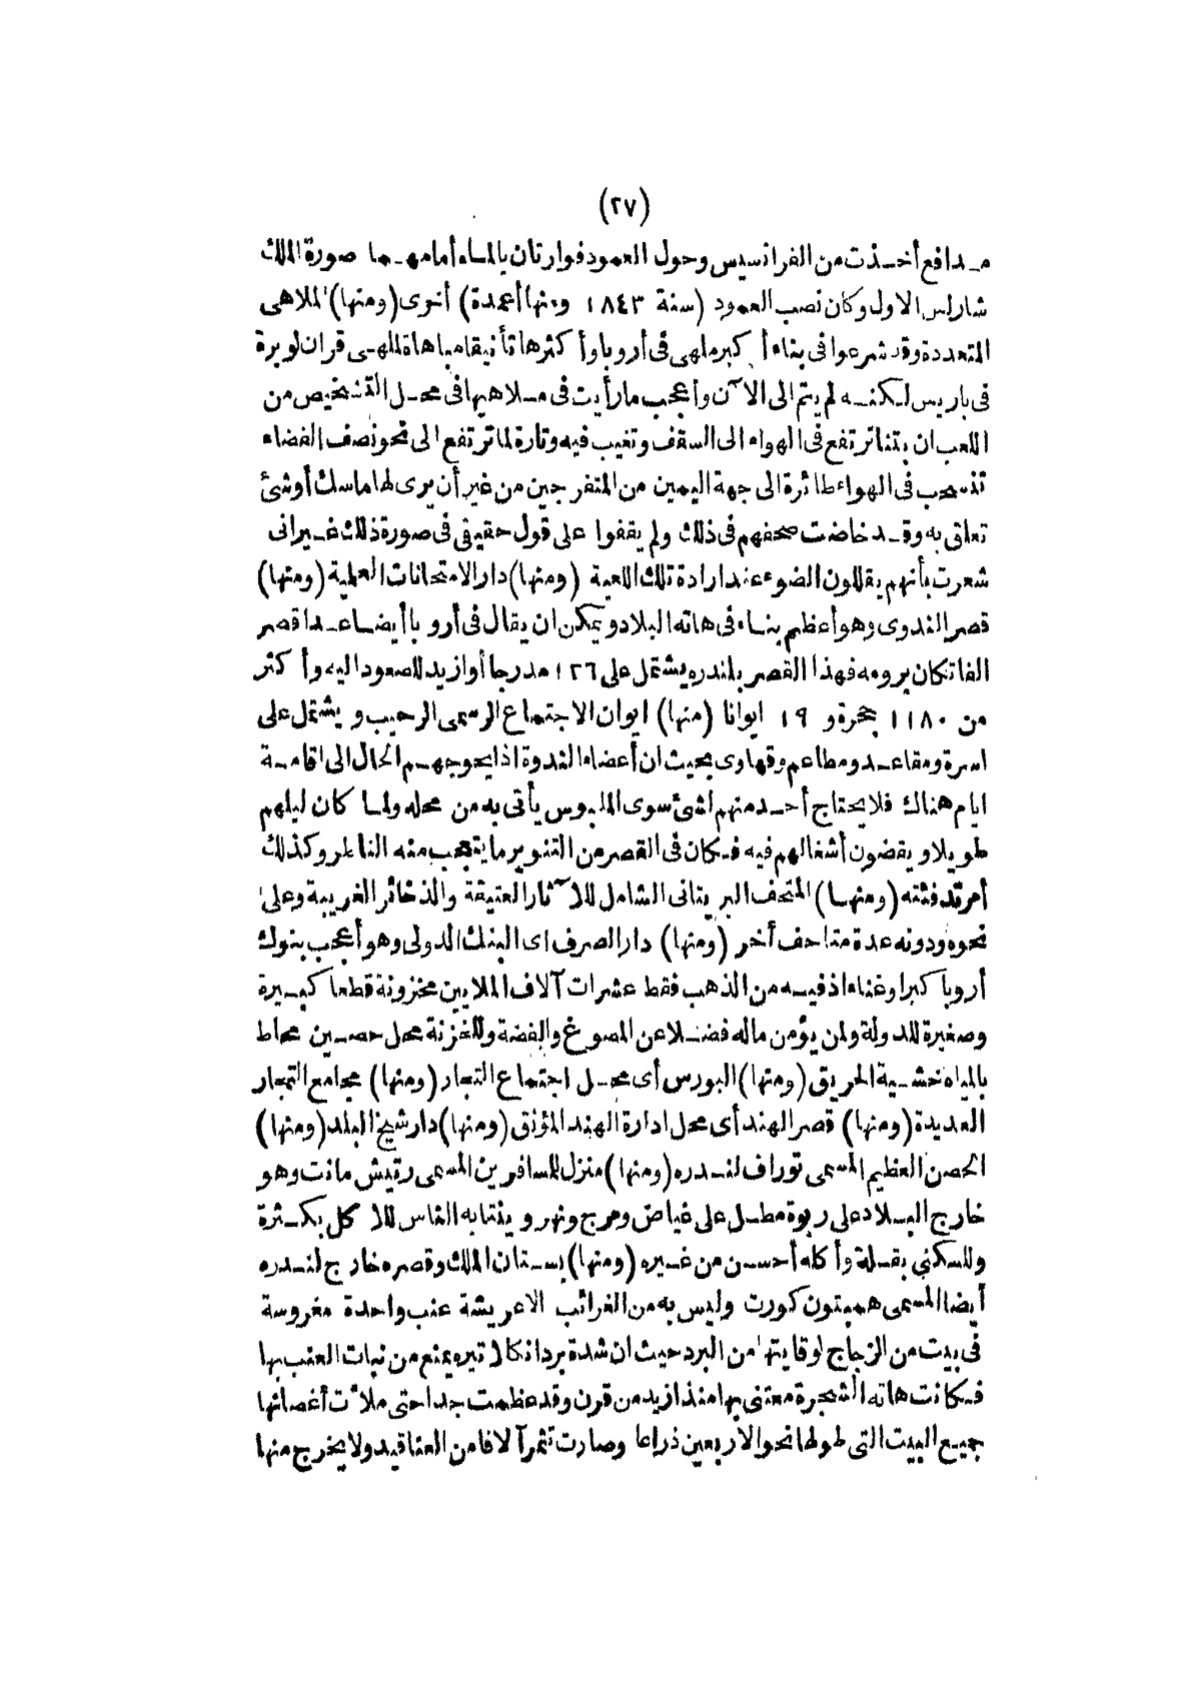 (٢٧)
مدافع أخذت من الفرانسيس وحول العمود فوارتان بالماء أمامهما صورة الملك
شارلس الاول وكان نصب العمود (سنة ١٨٤٣ ومنها أعمدة) أخرى (ومنها) الملاهى
المتعددة وقد شرعوا فى بناء أكبر ملهى فى أروبا وأكثرها تأنيقا مباهاة لملهى قران لوبرة
فى باريس لكنه لم يتم الى الآن وأعجب ما رأيت فى ملاهيها فى محل التشخيص من
اللعب ان بنتا ترتفع فى الهواء الى السقف وتغيب فيه وتارة لما ترتفع الى نحو نصف الفضاء
تذهب فى الهواء طائرة الى جهة اليمين من المتفرجين من غير أن يرى لها ماسك أو شئ
تعلق به وقد خاضت صحفهم فى ذلك ولم يقفوا على قول حقيقى فى صورة ذلك غير انى
شعرت بأنهم يقللون الضوء عند ارادة تلك اللعبة (ومنها) دار الامتحانات العلمية (ومنها)
قصر الندوى وهو أعظم بناء فى هاته البلاد ويمكن ان يقال فى أروبا أيضا عدا قصر
الفاتكان برومه فهذا القصر بلندره يشتمل على ١٢٦ مدرجا أو ازيد للصعود اليه وأكثر
من ١١٨٠ حجرة و ١٩ ايوانا (منها) ايوان الاجتماع الرسمى الرحيب ويشتمل على
اسرة ومقاعد ومطاعم وقهاوى بحيث ان أعضاء الندوة اذا يحوجهم الحال الى اقامة
ايام هناك فلا يحتاج أحد منهم لشئ سوى الملبوس يأتى به من محله ولما كان ليلهم
طويلا ويقضون أشغالهم فيه فكان فى القصر من التنوير ما يتعجب منه الناظر وكذلك
أمر تدفئته (ومنها) المتحف البريتانى الشامل للآثار العتيقة والذخائر الغريبة وعلى
نحوه ودونه عدة متاحف أخر (ومنها) دار الصرف اى البنك الدولى وهو أعجب بنوك
أروبا كبرا وغناء اذ فيه من الذهب فقط عشرات آلاف الملايين مخزونة قطعا كبيرة
وصغيرة للدولة ولمن يؤمن ماله فضلا عن المصوغ والفضة وللخزنة محل حصين محاط
بالمياه خشية الحريق (ومنها) البورس أى محل اجتماع التجار (ومنها) مجامع التجار
العديدة (ومنها) قصر الهند أى محل ادارة الهند المؤنق (ومنها) دار شيخ البلد (ومنها)
الحصن العظيم المسمى توراف لندره (ومنها) منزل للمسافرين المسمى رتيش مانت وهو
خارج البلاد على ربوة مطل على غياض ومرج ونهر وينتابه الناس للاكل بكثرة
وللسكنى بقلة وأكله أحسن من غيره (ومنها) بستان الملك وقصره خارج لندره
أيضا المسمى همبتون كورت وليس به من الغرائب الا عريشة عنب واحدة مغروسة
فى بيت من الزجاج لوقايتها من البرد حيث ان شدة برد انكلاتيره يمنع من نبات العنب بها
فكانت هاته الشجرة معتنى بها منذ ازيد من قرن وقد عظمت جدا حتى ملأت أغصانها
جميع البيت التى طولها نحو الاربعين ذراعا وصارت تثمر آلافا من العناقيد ولا يخرج منها